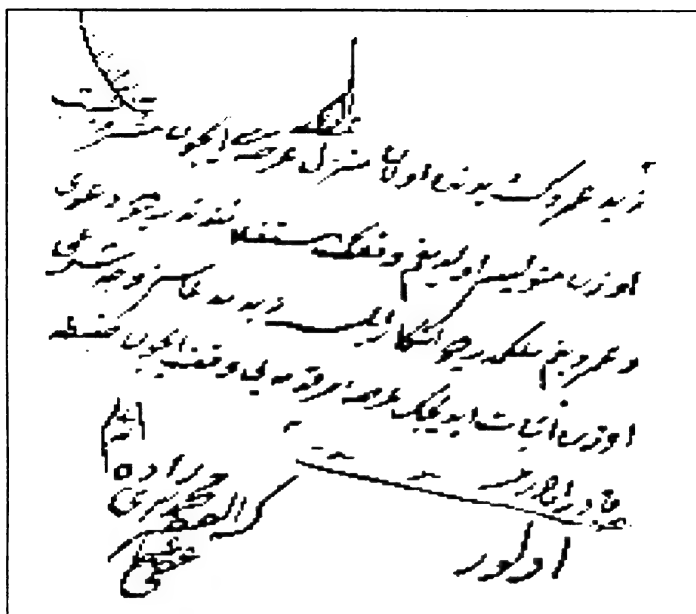 زيد عمروك يدنده اولان منزل عرصه سى ايچون مشروطيت
اوزره متوليسى اولديغم وقفك مستغلاتندندر ديو دعوى
و عمرو بنم ملكمدر ديو انكار ايلسه زيد مدعاسن وجه شرعى
اوزره اثبات ايديجك عرصهٔ مرقومه يى وقف ايچون ضبطه
قادر اولورمى
اولور
الفقير
عفى عنه